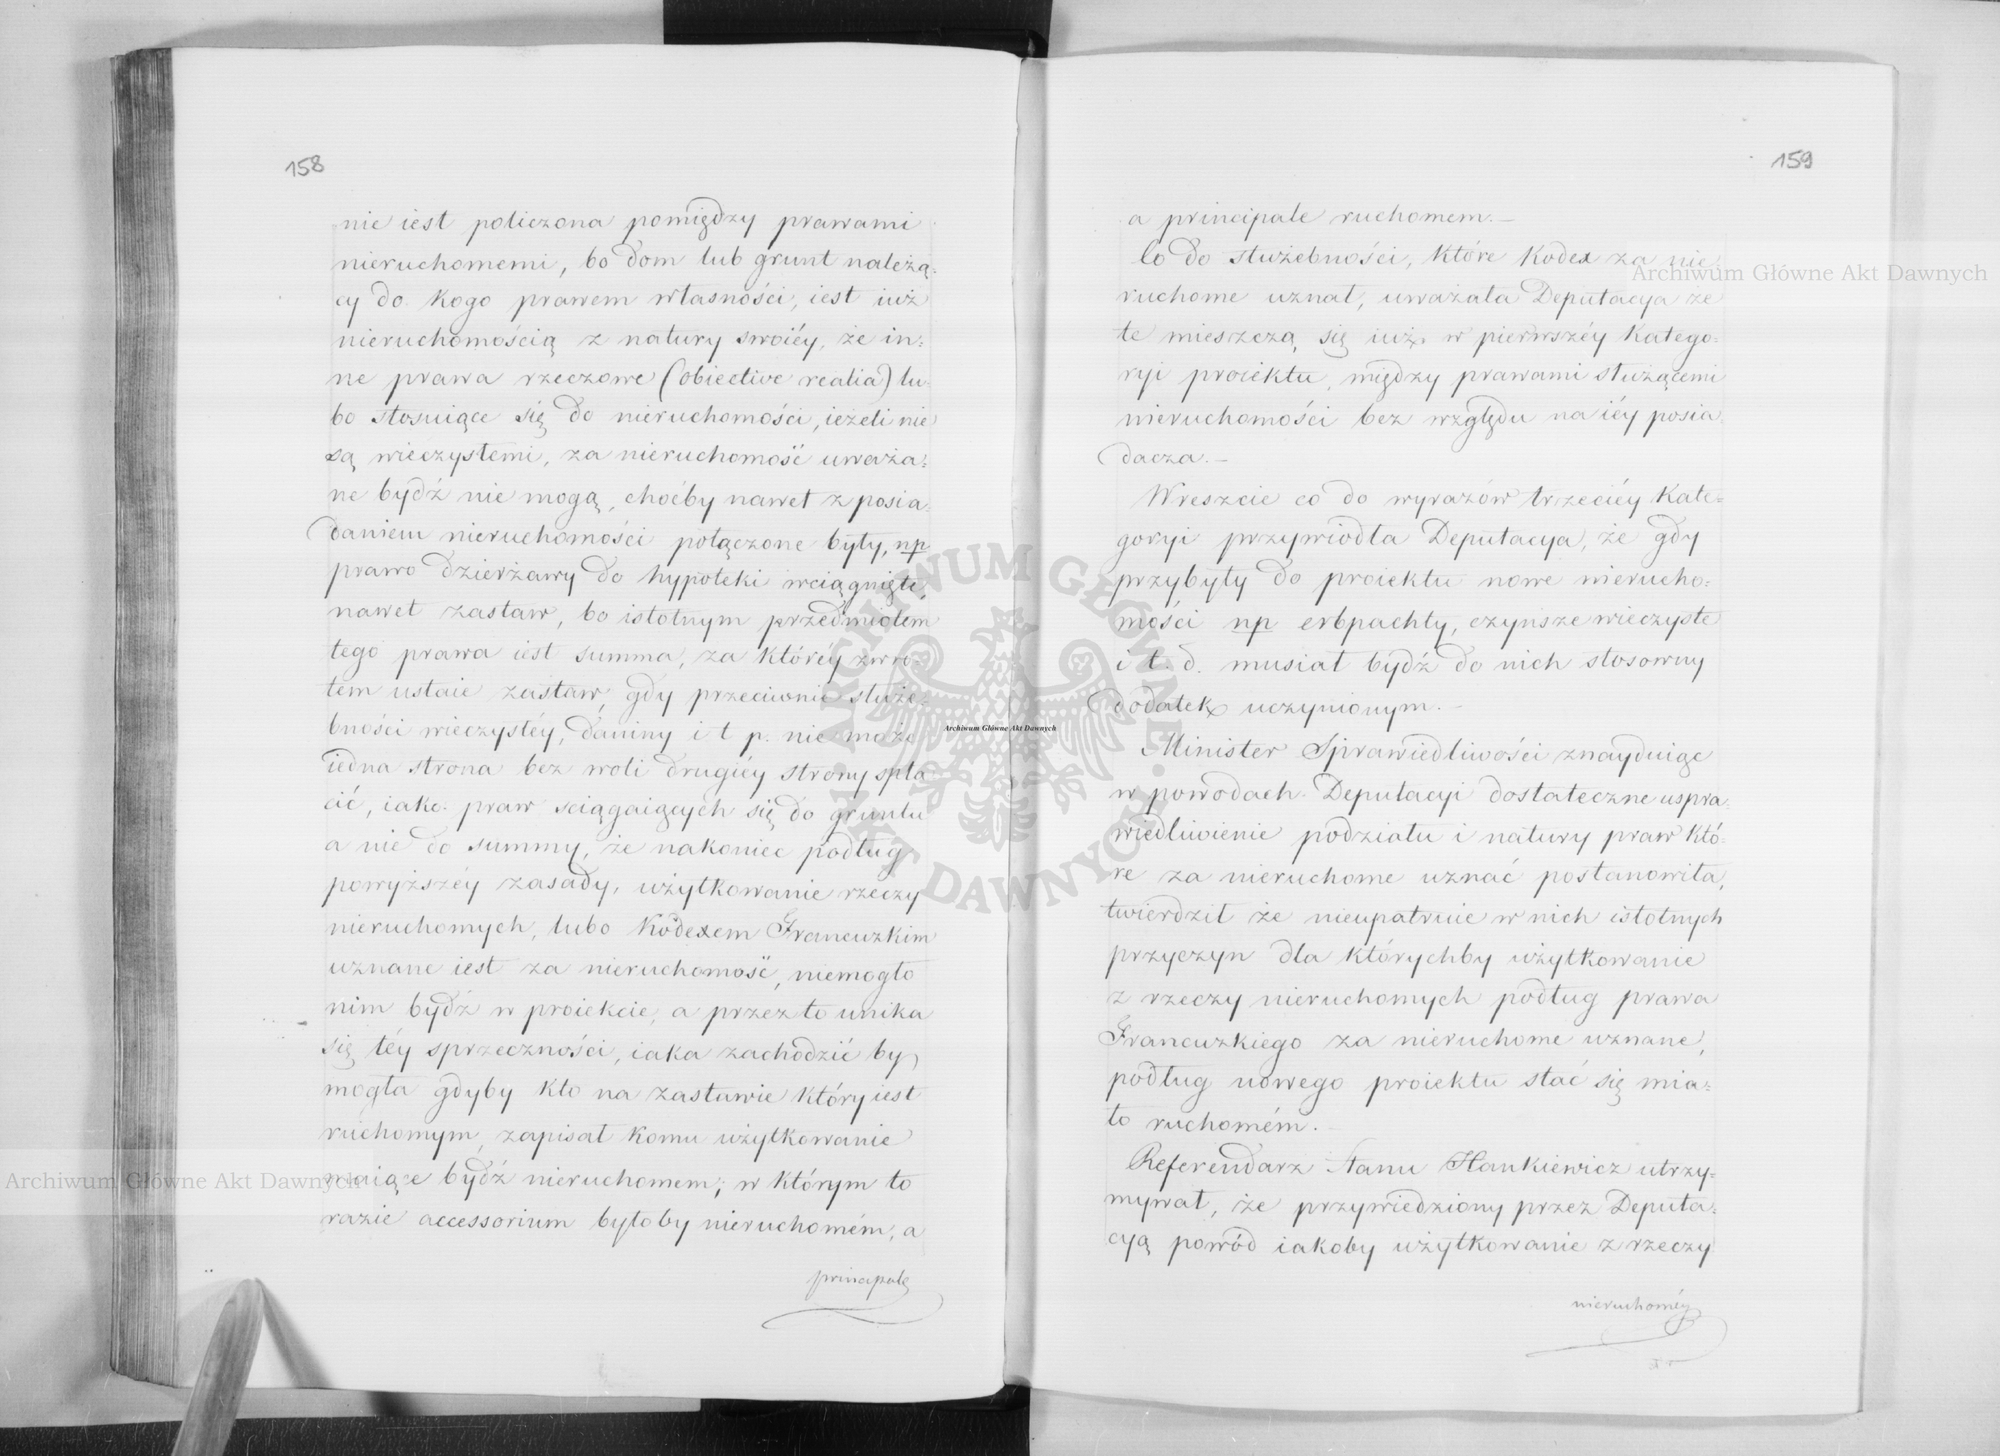 158
nie iest policzona pomiędzy prawami
nieruchomemi, bo dom lub grunt należą:
cy do kogo prawem własności, iest iuż
nieruchomością z natury swoiéy, że in:
ne prawa rzeczowe (obiective realia) lu:
bo stosuiące się do nieruchomości, ieżeli nie
są wieczystemi, za nieruchomość uważa:
ne bydź nie mogą, choćby nawet z posia:
daniem nieruchomości połączone były, np
prawo dzierżawy do hypoteki wciągnięte,
nawet zastaw, bo istotnym przedmiotem
tego prawa iest summa, za któréy zwro:
tem ustaie zastaw, gdy przeciwnie służe:
bności wieczystéy, daniny i t p. nie może
iedna strona bez woli drugiéy strony spła
cić, iako praw sciągaiących się do gruntu
a nie do summy, że nakoniec podług
powyższéy zasady, użytkowanie rzeczy
nieruchomych, lubo Kodexem Francuzkim
uznane iest za nieruchomość, niemogło
nim bydź w proiekcie, a przez to unika
się téy sprzeczności, iaka zachodzić by
mogła gdyby kto na zastawie który iest
ruchomym, zapisał komu użytkowanie
maiące bydź nieruchomem; w którym to
razie accessorium byłoby nieruchomém, a
principale
159
a principale ruchomem.—
Co do służebności, które Kodex za nie
ruchome uznał, uważała Deputacya że
te mieszczą się iuż w pierwszéy Katego:
ryi proiektu, między prawami służącemi
nieruchomości bez względu na iéy posia
dacza.—
Wreszcie co do wyrazów trzeciéy Kate:
goryi przywiodła Deputacya, że gdy
przybyły do proiektu nowe nierucho:
mości np erbpachty, czynsze wieczyste
i t. d. musiał bydź do nich stosowny
dodatek uczynionym.—
Minister Sprawiedliwości znayduiąc
w powodach Deputacyi dostateczne uspra:
wiedliwienie podziału i natury praw któ:
re za nieruchome uznać postanowiła,
twierdził że nieupatruie w nich istotnych
przyczyn dla którychby użytkowanie
z rzeczy nieruchomych podług prawa
Francuzkiego za nieruchome uznane,
podług nowego proiektu stać się mia:
ło ruchomém.—
Referendarz Stanu Hankiewicz utrzy:
mywał, że przywiedziony przez Deputa:
cyą powód iakoby użytkowanie z rzeczy
nieruchoméy
Archiwum Główne Akt Dawnych
ARCHIWUM GŁÓWNE AKT DAWNYCH
Archiwum Główne Akt Dawnych
Archiwum Główne Akt Dawnych